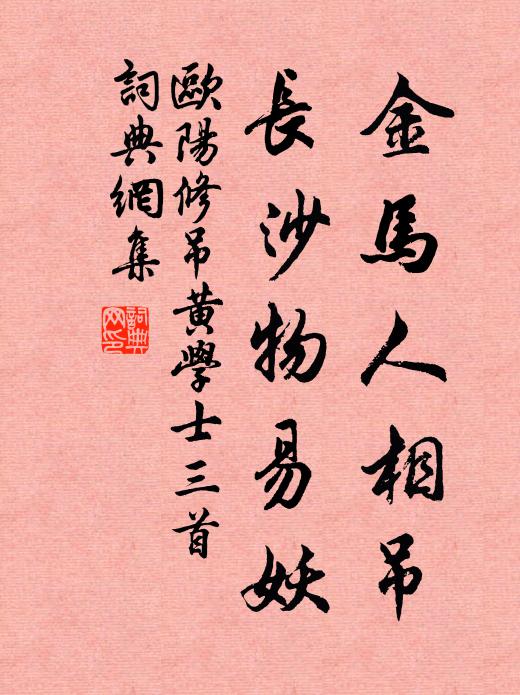 金馬人相吊
長沙物易妖
歐陽修吊黃學士三首
詞典網集
詞典網印